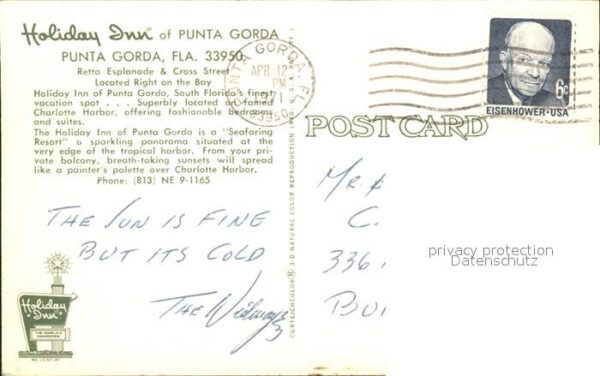 Holiday Inn of PUNTA GORDA
PUNTA GORDA, FLA. 33950
Retta Esplanade & Cross Street
Located Right on the Bay
Holiday Inn of Punta Gorda, South Florida's finest
vacation spot . . . Superbly located on famed
Charlotte Harbor, offering fashionable bedrooms
and suites.
The Holiday Inn of Punta Gorda is a "Seafaring
Resort" a sparkling panorama situated at the
very edge of the tropical harbor. From your pri-
vate balcony, breath-taking sunsets will spread
like a painter's palette over Charlotte Harbor.
Phone: (813) NE 9-1165
THE SUN IS FINE
BUT ITS COLD
THE
Holiday
Inn
PUNTA GORDA, FL
APR 12
PM
3-D NATURAL COLOR REPRODUCTION
CURTEICHCOLOR®
POST CARD
6c
EISENHOWER·USA
MR.
C.
336
BU
privacy protection
Datenschutz